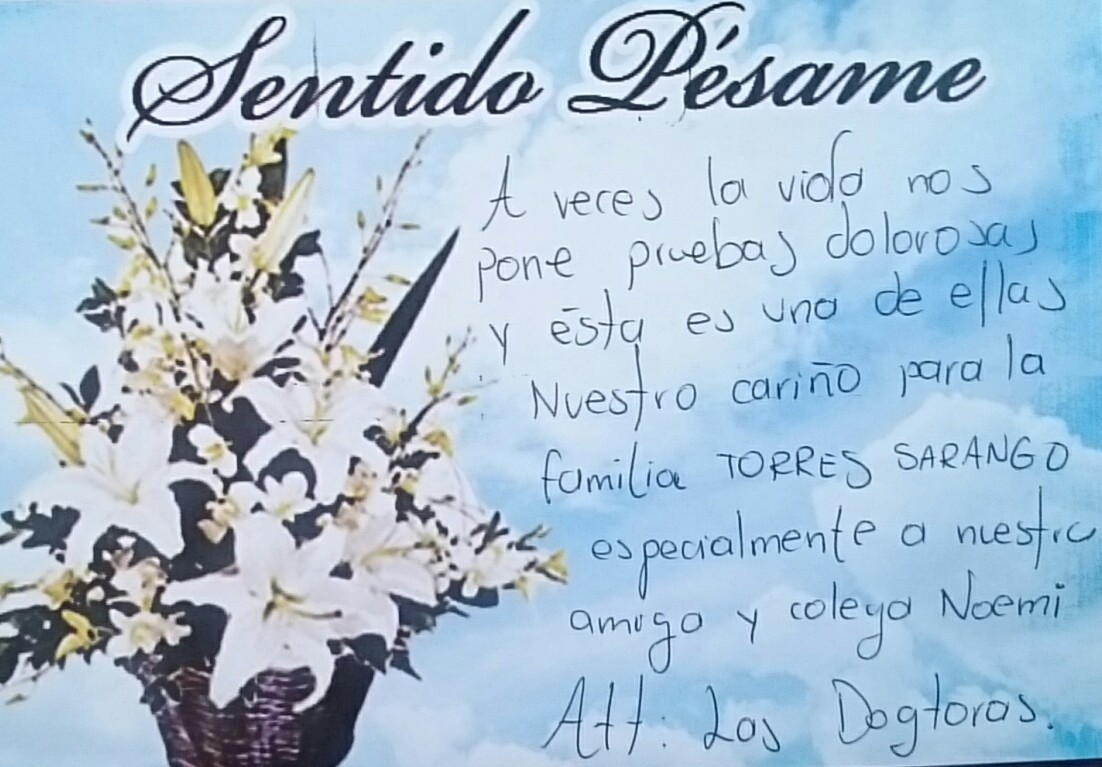 Sentido Pésame
A veces la vida nos
pone pruebas dolorosas
y ésta es una de ellas
Nuestro cariño para la
familia TORRES SARANGO
especialmente a nuestra
amiga y colega Noemi
Att: Las Dogtoras.